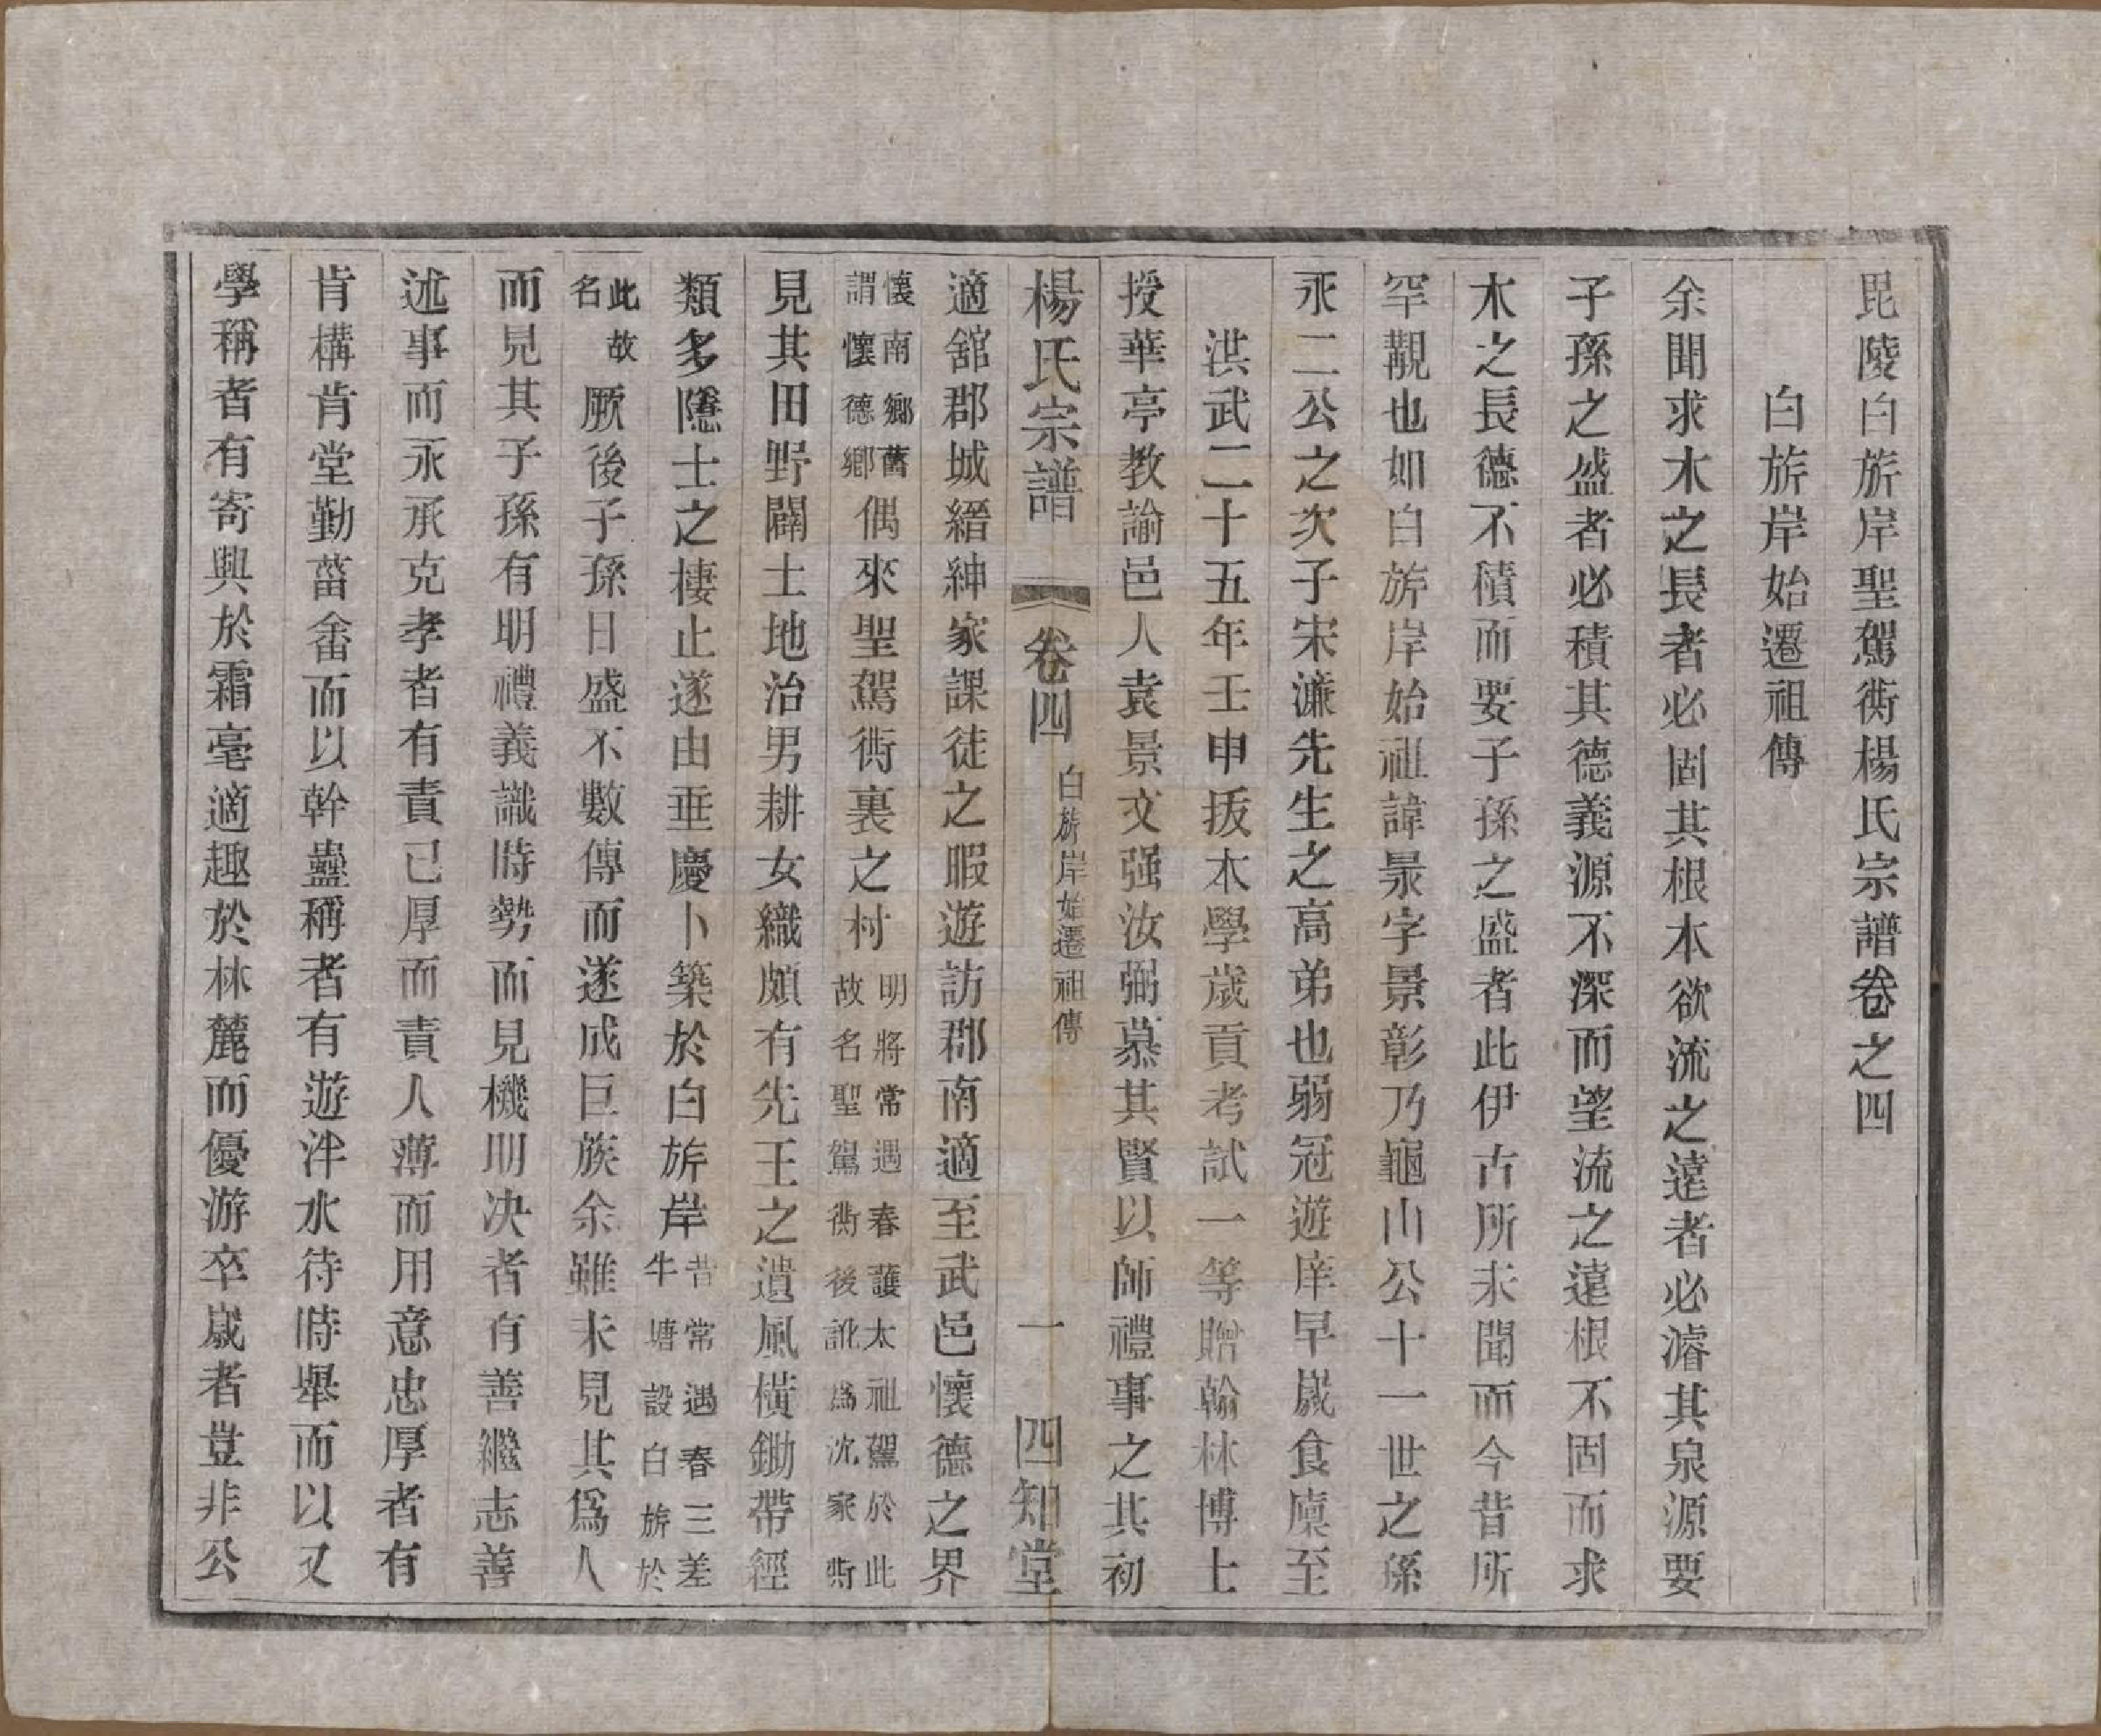 毘陵白旂岸聖駕衖楊氏宗譜卷之四
白旂岸始遷祖傳
余聞求木之長者必固其根本欲流之遠者必濬其泉源要
子孫之盛者必積其德義源不深而望流之遠根不固而求
木之長德不積而要子孫之盛者此伊古所未聞而今昔所
罕覯也如白旂岸始祖諱景字景彰乃龜山公十一世之孫
永二公之次子宋濂先生之高弟也弱冠遊庠早歲食廩至
洪武二十五年壬申拔本學歲貢考試一等贈翰林博士
授華亭教諭邑人袁景文强汝弼慕其賢以師禮事之其初
楊氏宗譜 卷四 白旂岸始遷祖傳 一 四知堂
適舘郡城縉紳家課徒之暇遊訪郡南適至武邑懷德之界
懷南鄉舊謂懷德鄉偶來聖駕衖裏之村明將常遇春護太祖駕於此故名聖駕衖後訛爲沈家衖
見其田野闢土地治男耕女織頗有先王之遺風橫鋤帶經
類多隱士之棲止遂由垂慶卜築於白旂岸昔常遇春三差牛塘設白旂於
此故名厥後子孫日盛不數傳而遂成巨族余雖未見其爲人
而見其子孫有明禮義識時勢而見機明决者有善繼志善
述事而永承克孝者有責己厚而責人薄而用意忠厚者有
肯構肯堂勤菑畬而以幹蠱稱者有遊泮水待時舉而以又
學稱者有寄興於霜毫適趣於林麓而優游卒歲者豈非公